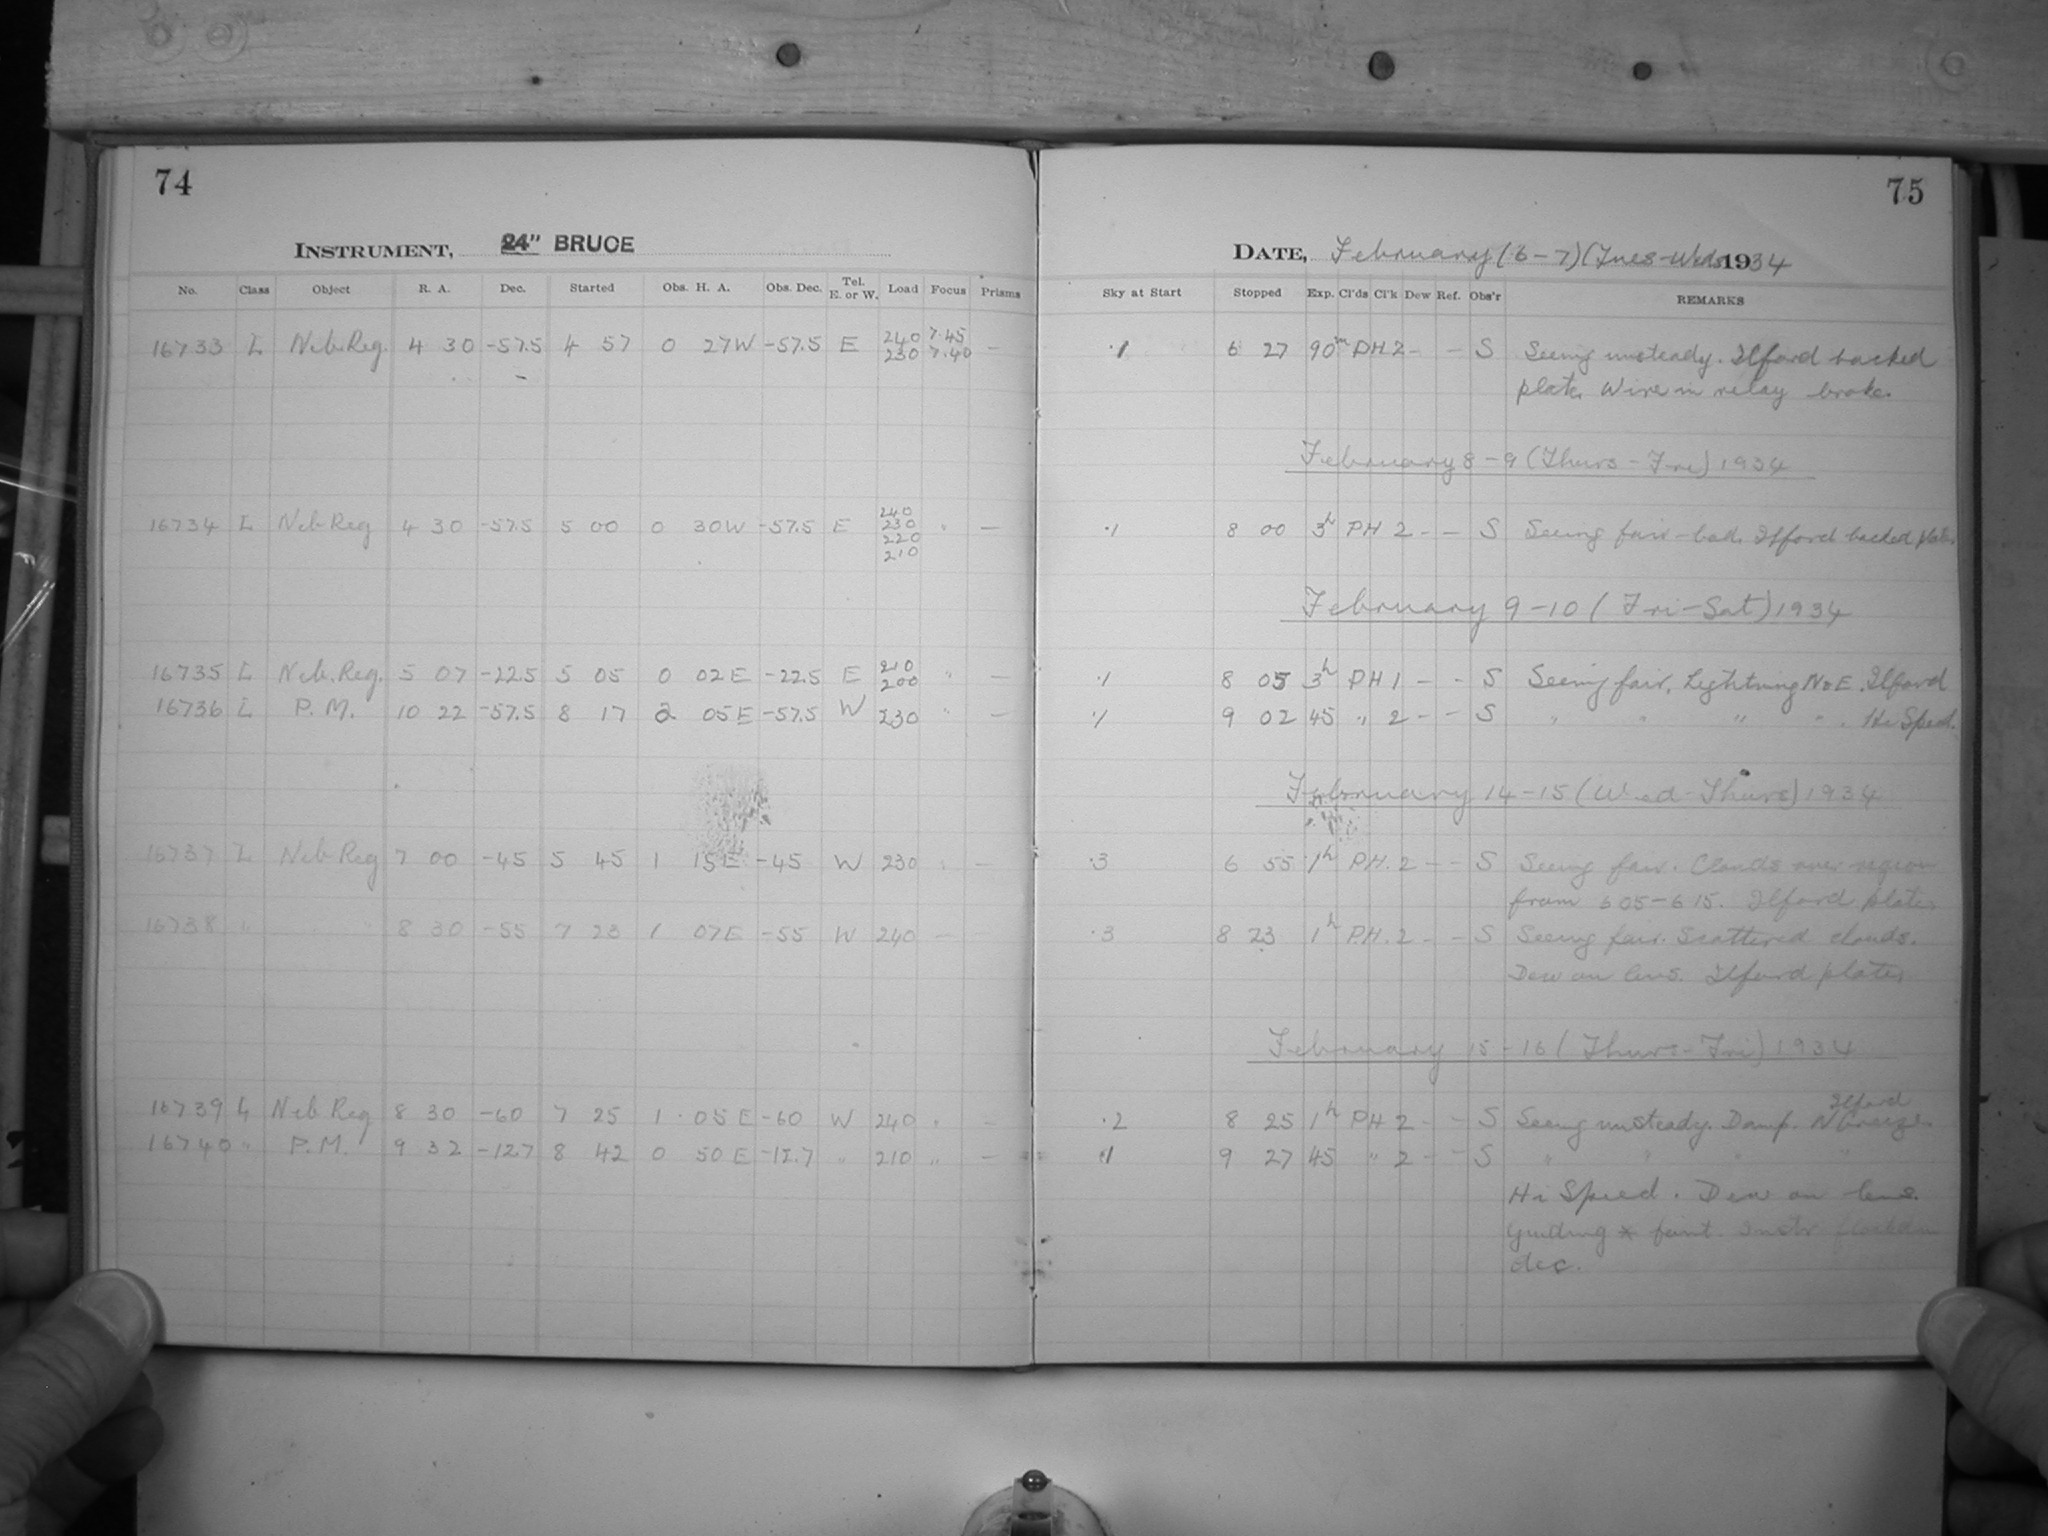 74
75
INSTRUMENT, 24" BRUCE
DATE, February (6-7) (Tues-Weds 1934
No. Class Object R. A. Dec. Started Obs. H. A. Obs. Dec. Tel. E. or W. Load Focus Prisms Sky at Start Stopped Exp. Cl'ds Cl'k Dew Ref. Obs'r REMARKS
16733 L Neb. Reg. 4 30 -57.5 4 57 0 27W -57.5 E 240 230 7.45 7.40 — .1 6 27 90m PH 2 - - S Seeing unsteady. Ilford backed
plate. Wire in relay broke.
February 8-9 (Thurs-Fri) 1934
16734 L Neb Reg 4 30 -57.5 5 00 0 30W -57.5 E 240 230 220 210 " — .1 8 00 3h PH 2 - - S Seeing fair-bad. Ilford backed plate.
February 9-10 (Fri-Sat) 1934
16735 L Neb. Reg. 5 07 -22.5 5 05 0 02E -22.5 E 210 200 " — .1 8 05 3h PH 1 - - S Seeing fair. Lightning N&E. Ilford
16736 L P. M. 10 22 -57.5 8 17 2 05E -57.5 W 230 " — .1 9 02 45 " 2 - - S " " " " . Hi Speed.
February 14-15 (Wed-Thurs) 1934
16737 L Neb Reg 7 00 -45 5 45 1 15E -45 W 230 " — .3 6 55 1h PH. 2 - - S Seeing fair. Clouds over region
from 605-615. Ilford plate.
16738 " " 8 30 -55 7 23 1 07E -55 W 240 — — .3 8 23 1h PH. 2 - - S Seeing fair. Scattered clouds.
Dew on lens. Ilford plate.
February 15-16 (Thurs-Fri) 1934
16739 L Neb Reg 8 30 -60 7 25 1 05E -60 W 240 " — .2 8 25 1h PH 2 - - S Seeing unsteady. Damp. N breeze. Ilford
16740 " P.M. 9 32 -12.7 8 42 0 50E -12.7 " 210 " — .1 9 27 45 " 2 - - S " " " "
Hi Speed. Dew on lens.
Guiding * faint. Instr in
dec.